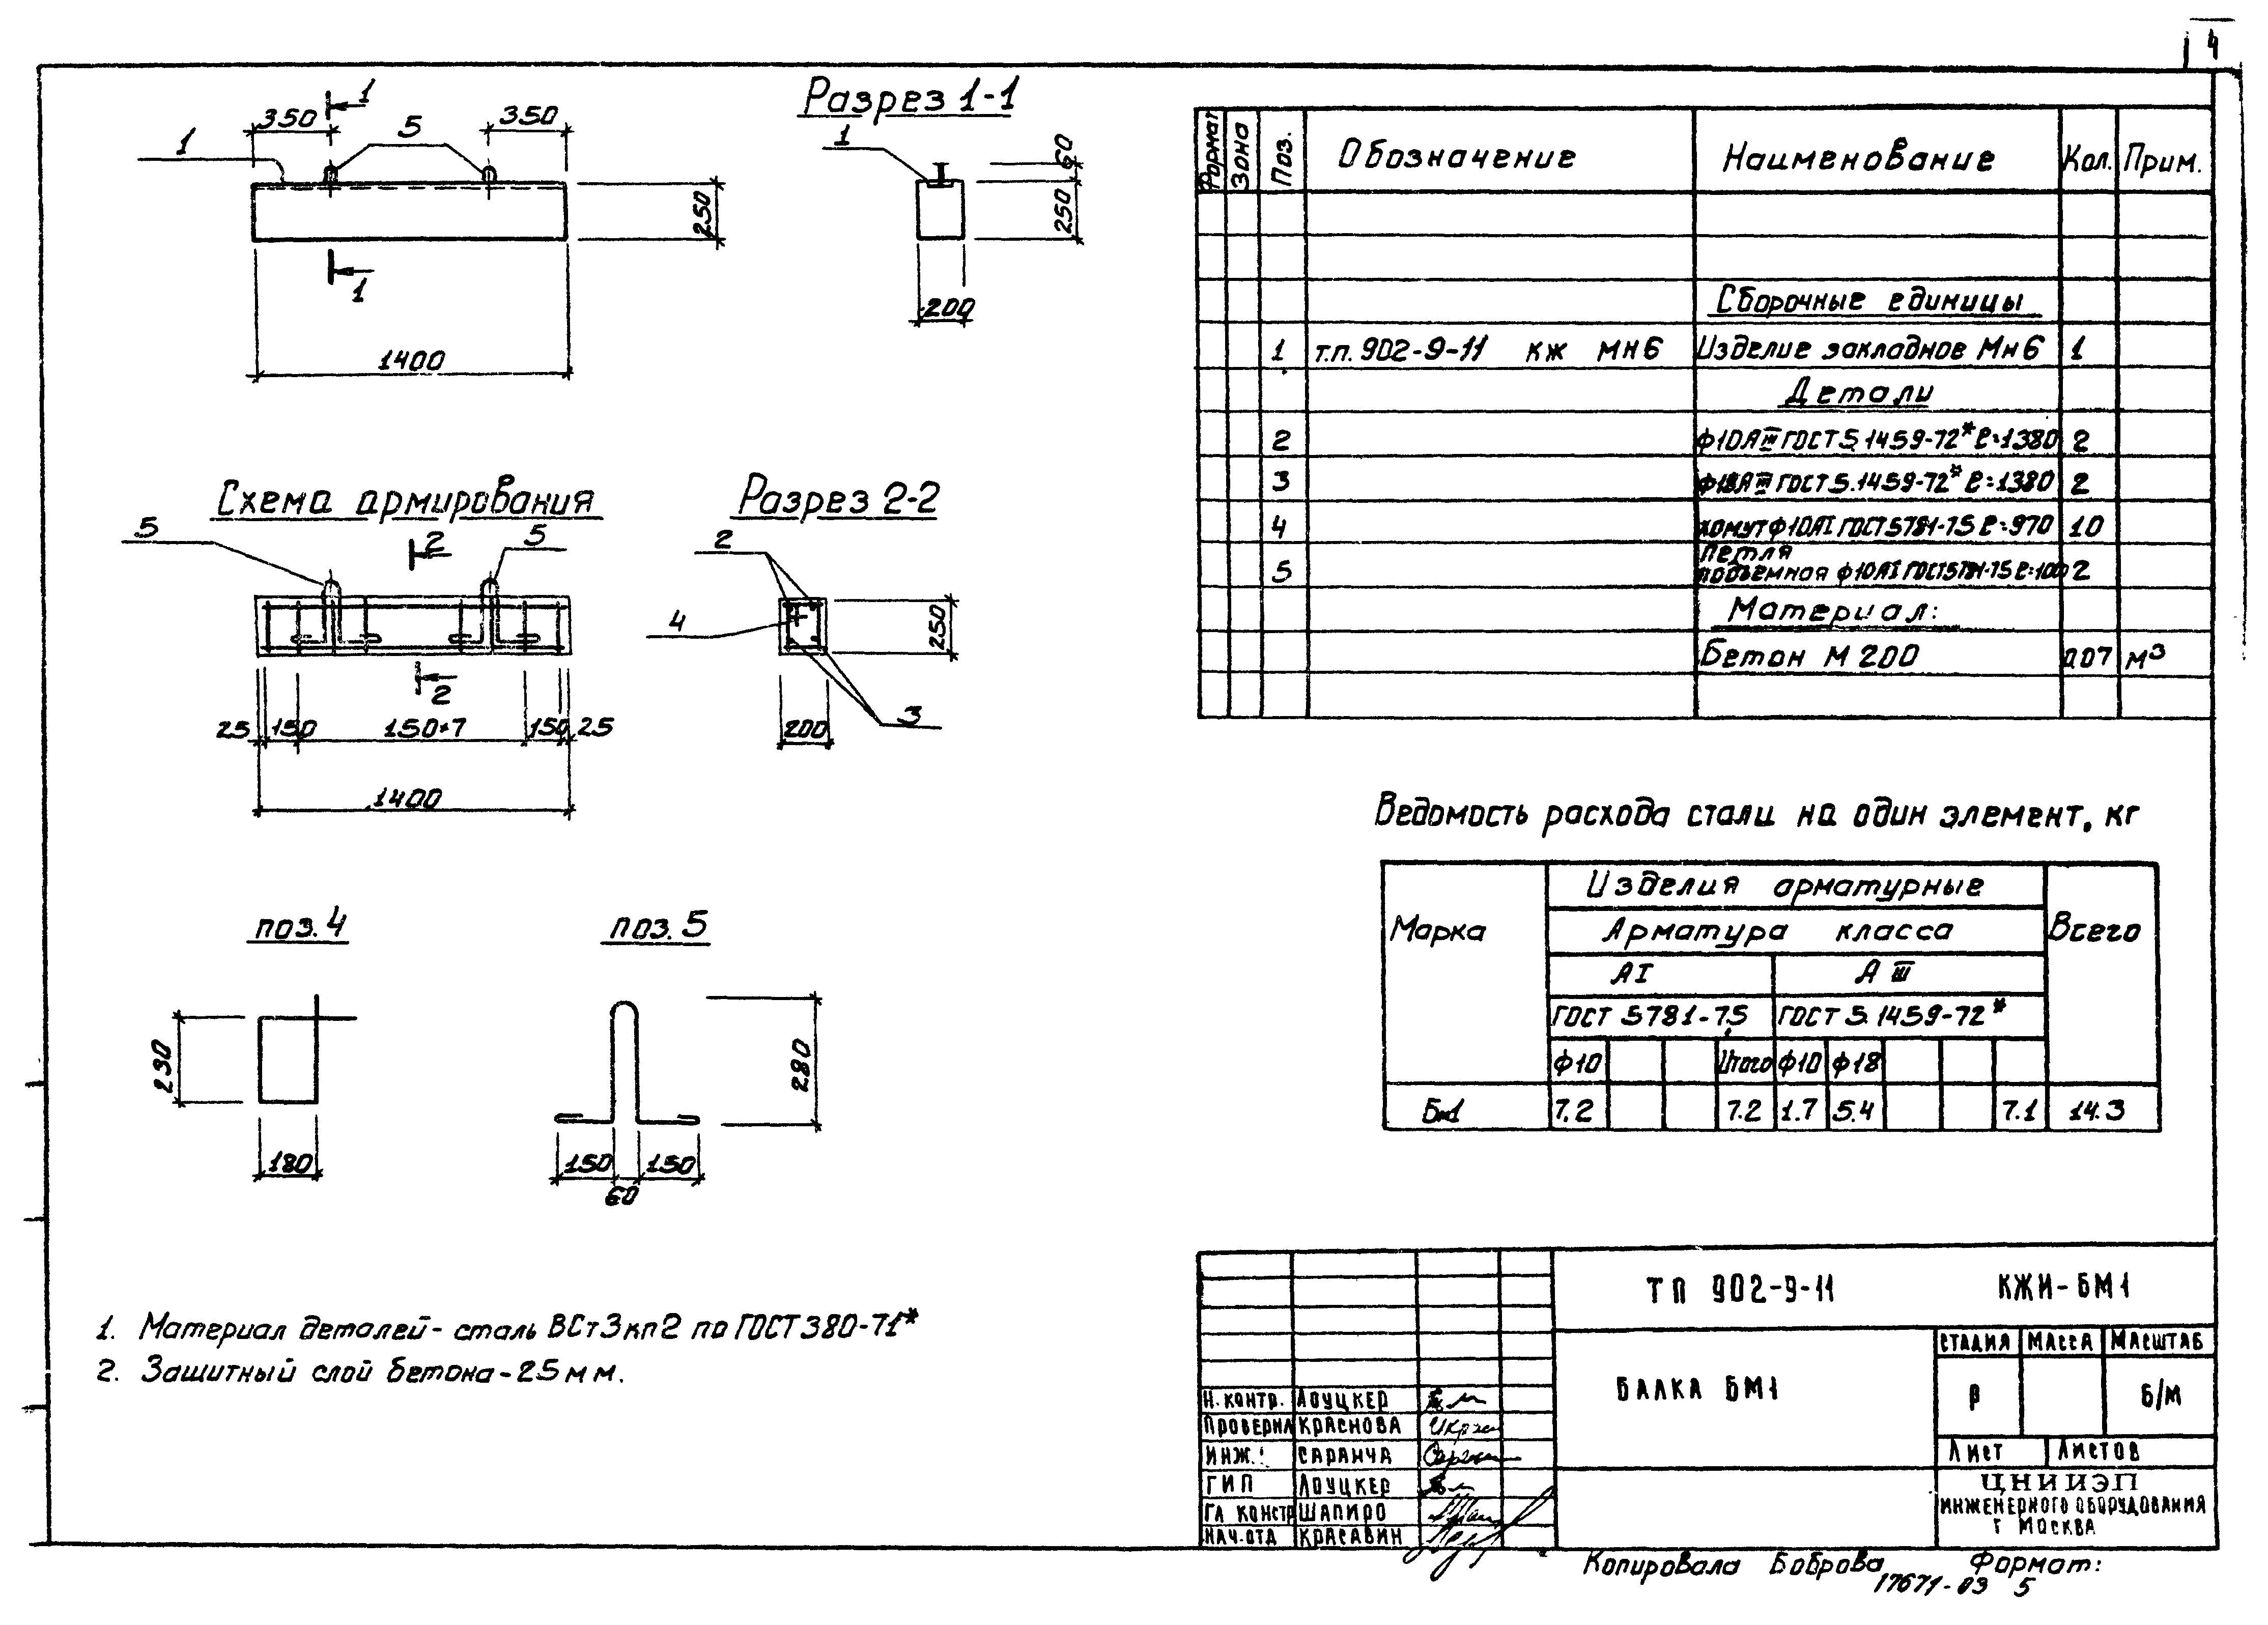 4
350
1
5
350
1
250
1
1400
Разрез 1-1
1
60
250
200
Схема армирования
5
2
5
2
25
150
150×7
150
25
1400
Разрез 2-2
2
4
3
250
200
поз. 4
230
180
поз. 5
280
150
60
150
1. Материал деталей - сталь ВСт3кп2 по ГОСТ 380-71*
2. Защитный слой бетона - 25 мм.
Формат Зона Поз. Обозначение Наименование Кол. Прим.
Сборочные единицы
1 т.п. 902-9-11 КЖ МН6 Изделие закладное Мн6 1
Детали
2 ф10АIII ГОСТ 5.1459-72* ℓ=1380 2
3 ф18АIII ГОСТ 5.1459-72* ℓ=1380 2
4 хомут ф10АI ГОСТ 5781-75 ℓ=970 10
Петля
5 подъемная ф10АI ГОСТ 5781-75 2
Материал:
Бетон М 200 0.07 м3
Ведомость расхода стали на один элемент, кг
Марка Изделия арматурные Всего
Арматура класса
АI АIII
ГОСТ 5781-75 ГОСТ 5.1459-72*
ф10 Итого ф10 ф18
Бм1 7.2 7.2 1.7 5.4 7.1 14.3
ТП 902-9-11 КЖИ-БМ1
БАЛКА БМ1
СТАДИЯ МАССА МАСШТАБ
Р Б/М
Лист Листов
ЦНИИЭП
ИНЖЕНЕРНОГО ОБОРУДОВАНИЯ
Г МОСКВА
Н. КОНТР. ЛОУЦКЕР
ПРОВЕРИЛ КРАСНОВА
ИНЖ. САРАНЧА
ГИП ЛОУЦКЕР
ГЛ КОНСТР ШАПИРО
НАЧ. ОТД КРАСАВИН
Копировала Боброва Формат:
17671-03 5